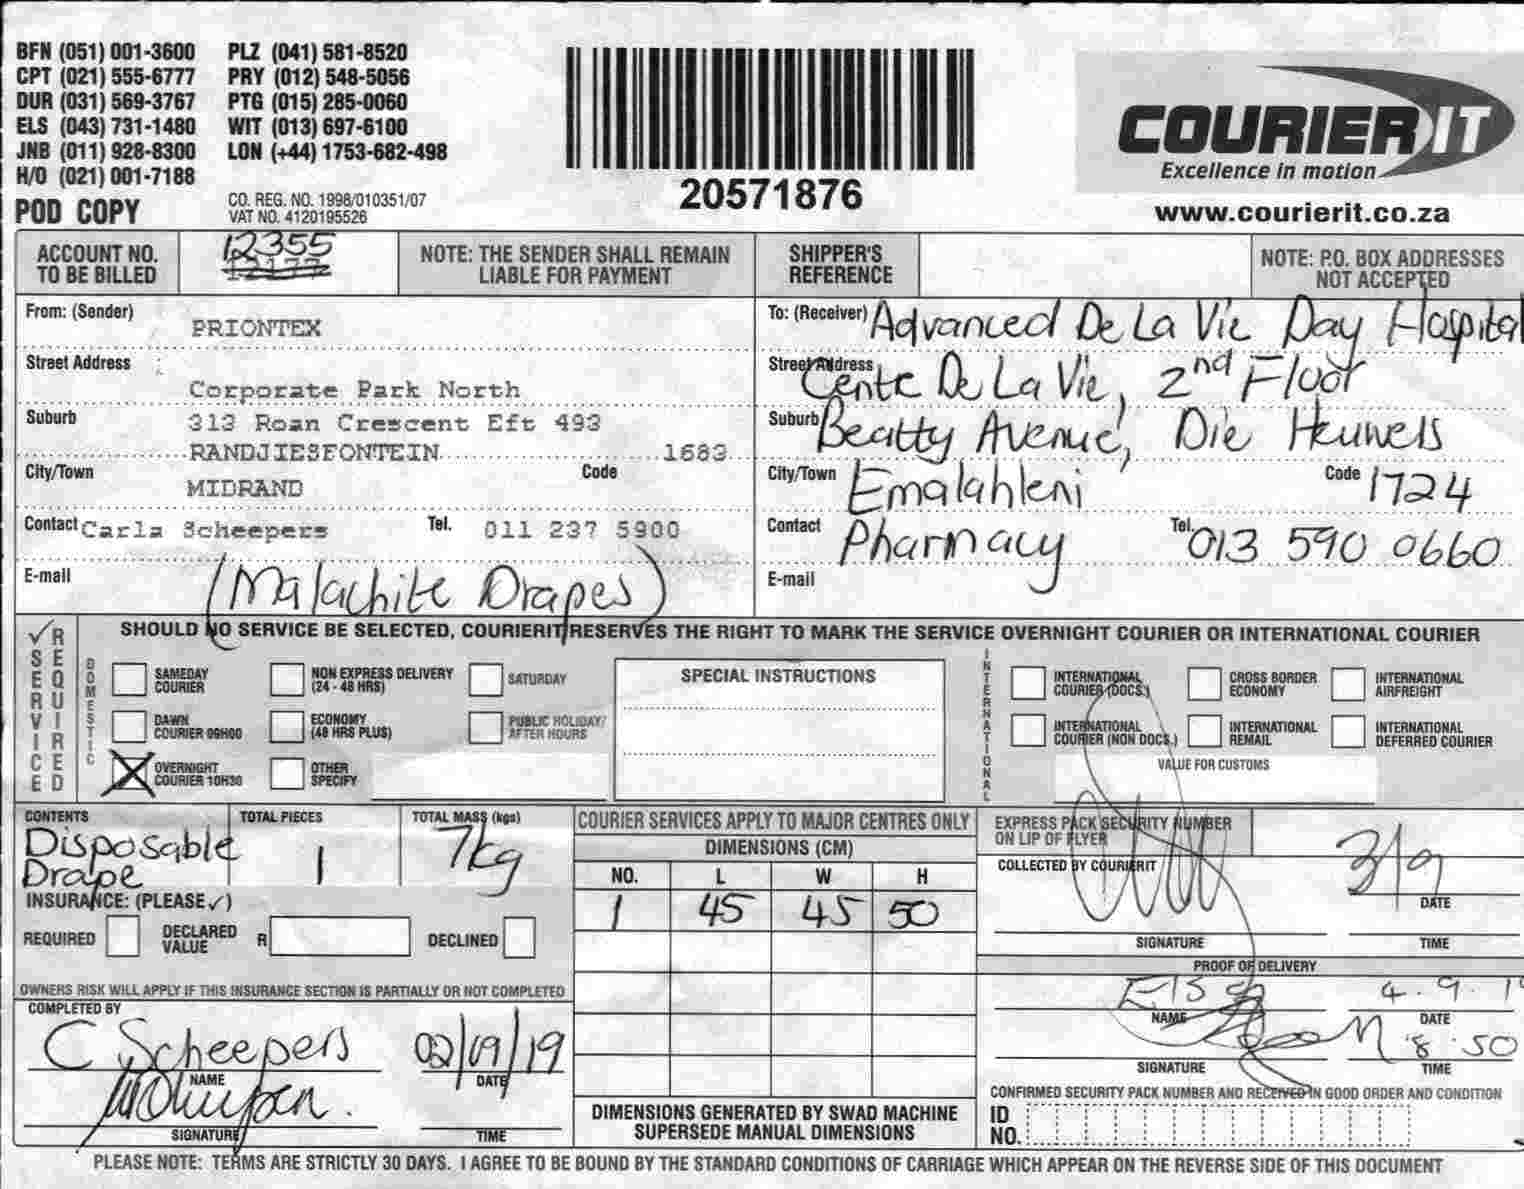 BFN (051) 001-3600 PLZ (041) 581-8520
CPT (021) 555-6777 PRY (012) 548-5056
DUR (031) 569-3767 PTG (015) 285-0060
ELS (043) 731-1480 WIT (013) 697-6100
JNB (011) 928-8300 LON (+44) 1753-682-498
H/O (021) 001-7188
POD COPY
CO. REG. NO. 1998/010351/07
VAT NO. 4120195526
20571876
COURIER IT
Excellence in motion
www.courierit.co.za
ACCOUNT NO. TO BE BILLED
12355
NOTE: THE SENDER SHALL REMAIN LIABLE FOR PAYMENT
SHIPPER'S REFERENCE
NOTE: P.O. BOX ADDRESSES NOT ACCEPTED
From: (Sender) PRIONTEX
Street Address
Corporate Park North
Suburb 313 Roan Crescent Eft 493
RANDJIESFONTEIN 1683
City/Town MIDRAND Code
Contact Carla Scheepers Tel. 011 237 5900
E-mail (Malachite Drapes)
To: (Receiver) Advanced De La Vie Day Hospital
Street Address Cente De La Vie, 2nd Floor
Suburb Beatty Avenue, Die Heuwels
City/Town Emalahleni Code 1724
Contact Pharmacy Tel. 013 590 0660
E-mail
SERVICE REQUIRED
SHOULD NO SERVICE BE SELECTED, COURIERIT RESERVES THE RIGHT TO MARK THE SERVICE OVERNIGHT COURIER OR INTERNATIONAL COURIER
DOMESTIC
SAMEDAY COURIER
NON EXPRESS DELIVERY (24 - 48 HRS)
SATURDAY
DAWN COURIER 09H00
ECONOMY (48 HRS PLUS)
PUBLIC HOLIDAY/ AFTER HOURS
OVERNIGHT COURIER 10H30
OTHER SPECIFY
SPECIAL INSTRUCTIONS
INTERNATIONAL
INTERNATIONAL COURIER (DOCS.)
CROSS BORDER ECONOMY
INTERNATIONAL AIRFREIGHT
INTERNATIONAL COURIER (NON DOCS.)
INTERNATIONAL REMAIL
INTERNATIONAL DEFERRED COURIER
VALUE FOR CUSTOMS
CONTENTS
Disposable
Drape
TOTAL PIECES
1
TOTAL MASS (kgs)
7kg
INSURANCE: (PLEASE ✓)
REQUIRED DECLARED VALUE R DECLINED
OWNERS RISK WILL APPLY IF THIS INSURANCE SECTION IS PARTIALLY OR NOT COMPLETED
COMPLETED BY
C Scheepers 02/09/19
NAME DATE
SIGNATURE TIME
COURIER SERVICES APPLY TO MAJOR CENTRES ONLY
DIMENSIONS (CM)
NO. L W H
1 45 45 50
DIMENSIONS GENERATED BY SWAD MACHINE SUPERSEDE MANUAL DIMENSIONS
EXPRESS PACK SECURITY NUMBER ON LIP OF FLYER
COLLECTED BY COURIERIT
3/9
DATE
SIGNATURE TIME
PROOF OF DELIVERY
4.9.19
NAME DATE
8.50
SIGNATURE TIME
CONFIRMED SECURITY PACK NUMBER AND RECEIVED IN GOOD ORDER AND CONDITION
ID NO.
PLEASE NOTE: TERMS ARE STRICTLY 30 DAYS. I AGREE TO BE BOUND BY THE STANDARD CONDITIONS OF CARRIAGE WHICH APPEAR ON THE REVERSE SIDE OF THIS DOCUMENT